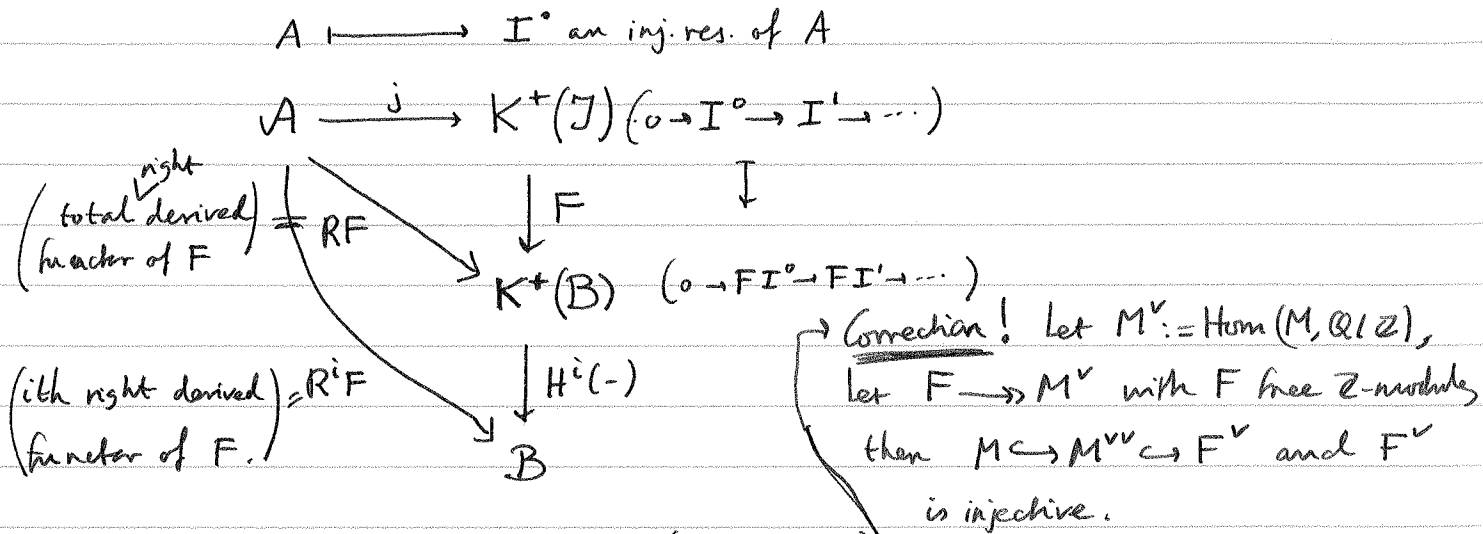 A ⟼ I• an inj. res. of A
𝒜 —j→ K⁺(ℐ) (0→I⁰→I¹→⋯)
(total right derived functor of F) = RF
↓F ↧
K⁺(B) (0→FI⁰→FI¹→⋯)
(ith right derived functor of F.) = RⁱF
↓Hⁱ(-)
B
→ Correction! Let Mᵛ := Hom(M, Q/Z),
let F ↠ Mᵛ with F free Z-module,
then M↪Mᵛᵛ↪Fᵛ and Fᵛ
is injective.